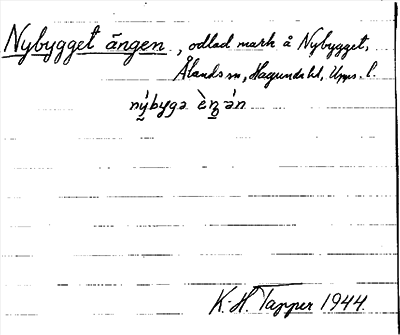 Nybygget ängen, odlad mark å Nybygget,
Ålands sn, Hagunda hd, Upps. l.
K.-H. Tapper 1944